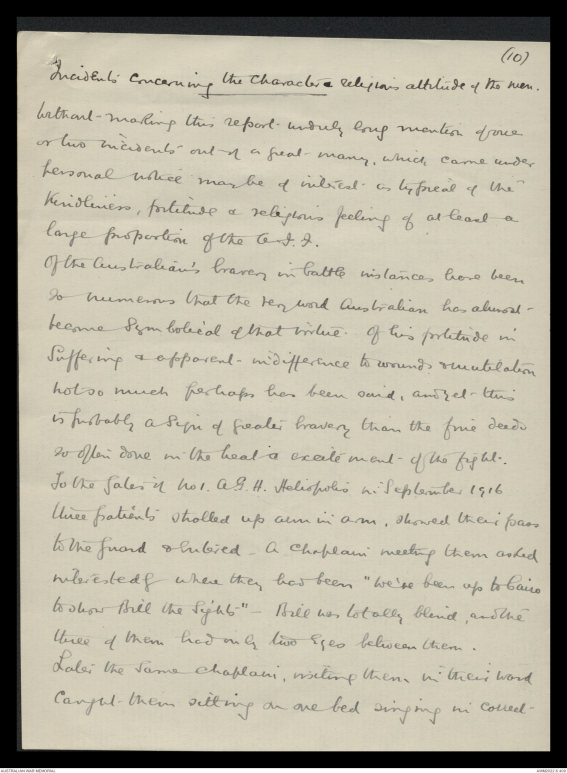 (10)
Incidents concerning the character & religious attitude of the men.
Without making this report unduly long mention of one
or two incidents out of a great many, which came under
personal notice may be of interest as typical of the
Kindliness, fortitude & religious feeling of at least a
large proportion of the A.I.F.
Of the Australian's bravery in battle instances have been
so numerous that the very word Australian has almost
become Symbolical of that virtue. Of his fortitude in
Suffering & apparent indifference to wounds & mutilation
not so much perhaps has been said, and yet this
is probably a sign of greater bravery than the fine deeds
so often done in the heat & excitement of the fight.
To the Gates of No 1. A.G.H. Heliopolis in September 1916
three patients strolled up arm in arm, showed their pass
to the Guard & Entered – A Chaplain meeting them asked
interestedly where they had been "We've been up to Cairo
to show Bill the Sights" – Bill was totally blind, and the
three of them had only two Eyes between them.
Later the same chaplain, visiting them in their ward
Caught them sitting on one bed singing in correct
AUSTRALIAN WAR MEMORIAL